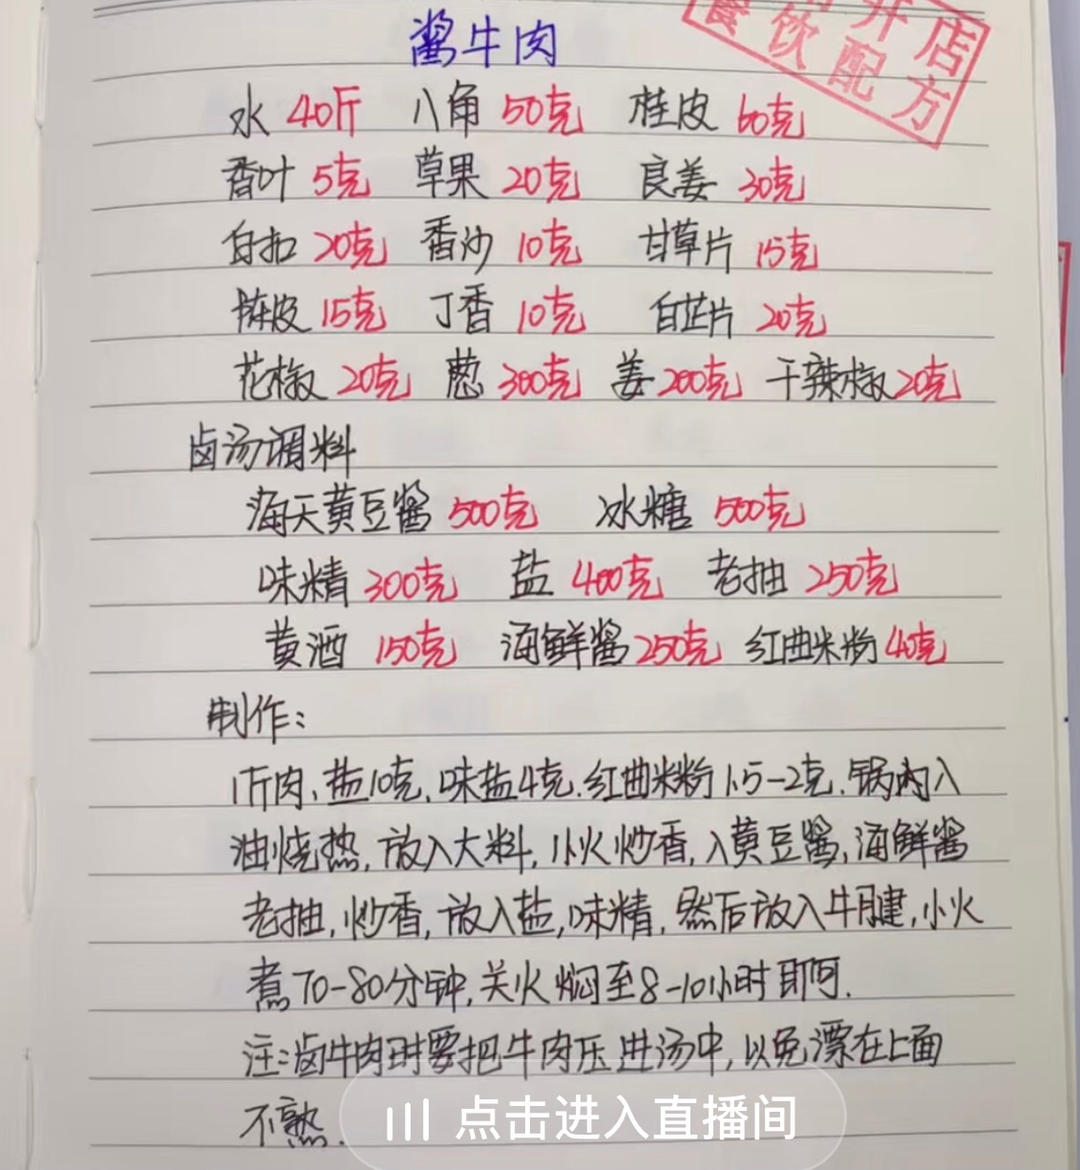 酱牛肉
开店
餐饮配方
水 40斤 八角 50克 桂皮 60克
香叶 5克 草果 20克 良姜 30克
白扣 20克 香沙 10克 甘草片 15克
陈皮 15克 丁香 10克 白芷片 20克
花椒 20克 葱 300克 姜 200克 干辣椒 20克
卤汤调料
海天黄豆酱 500克 冰糖 500克
味精 300克 盐 400克 老抽 250克
黄酒 150克 海鲜酱 250克 红曲米粉 40克
制作：
1斤肉、盐10克、味盐4克.红曲米粉1.5-2克.锅内入
油烧热,放入大料,小火炒香,入黄豆酱,海鲜酱
老抽,炒香,放入盐,味精,然后放入牛腱,小火
煮70-80分钟,关火焖至8-10小时即可.
注:卤牛肉时要把牛肉压进汤中,以免漂在上面
不熟.
点击进入直播间